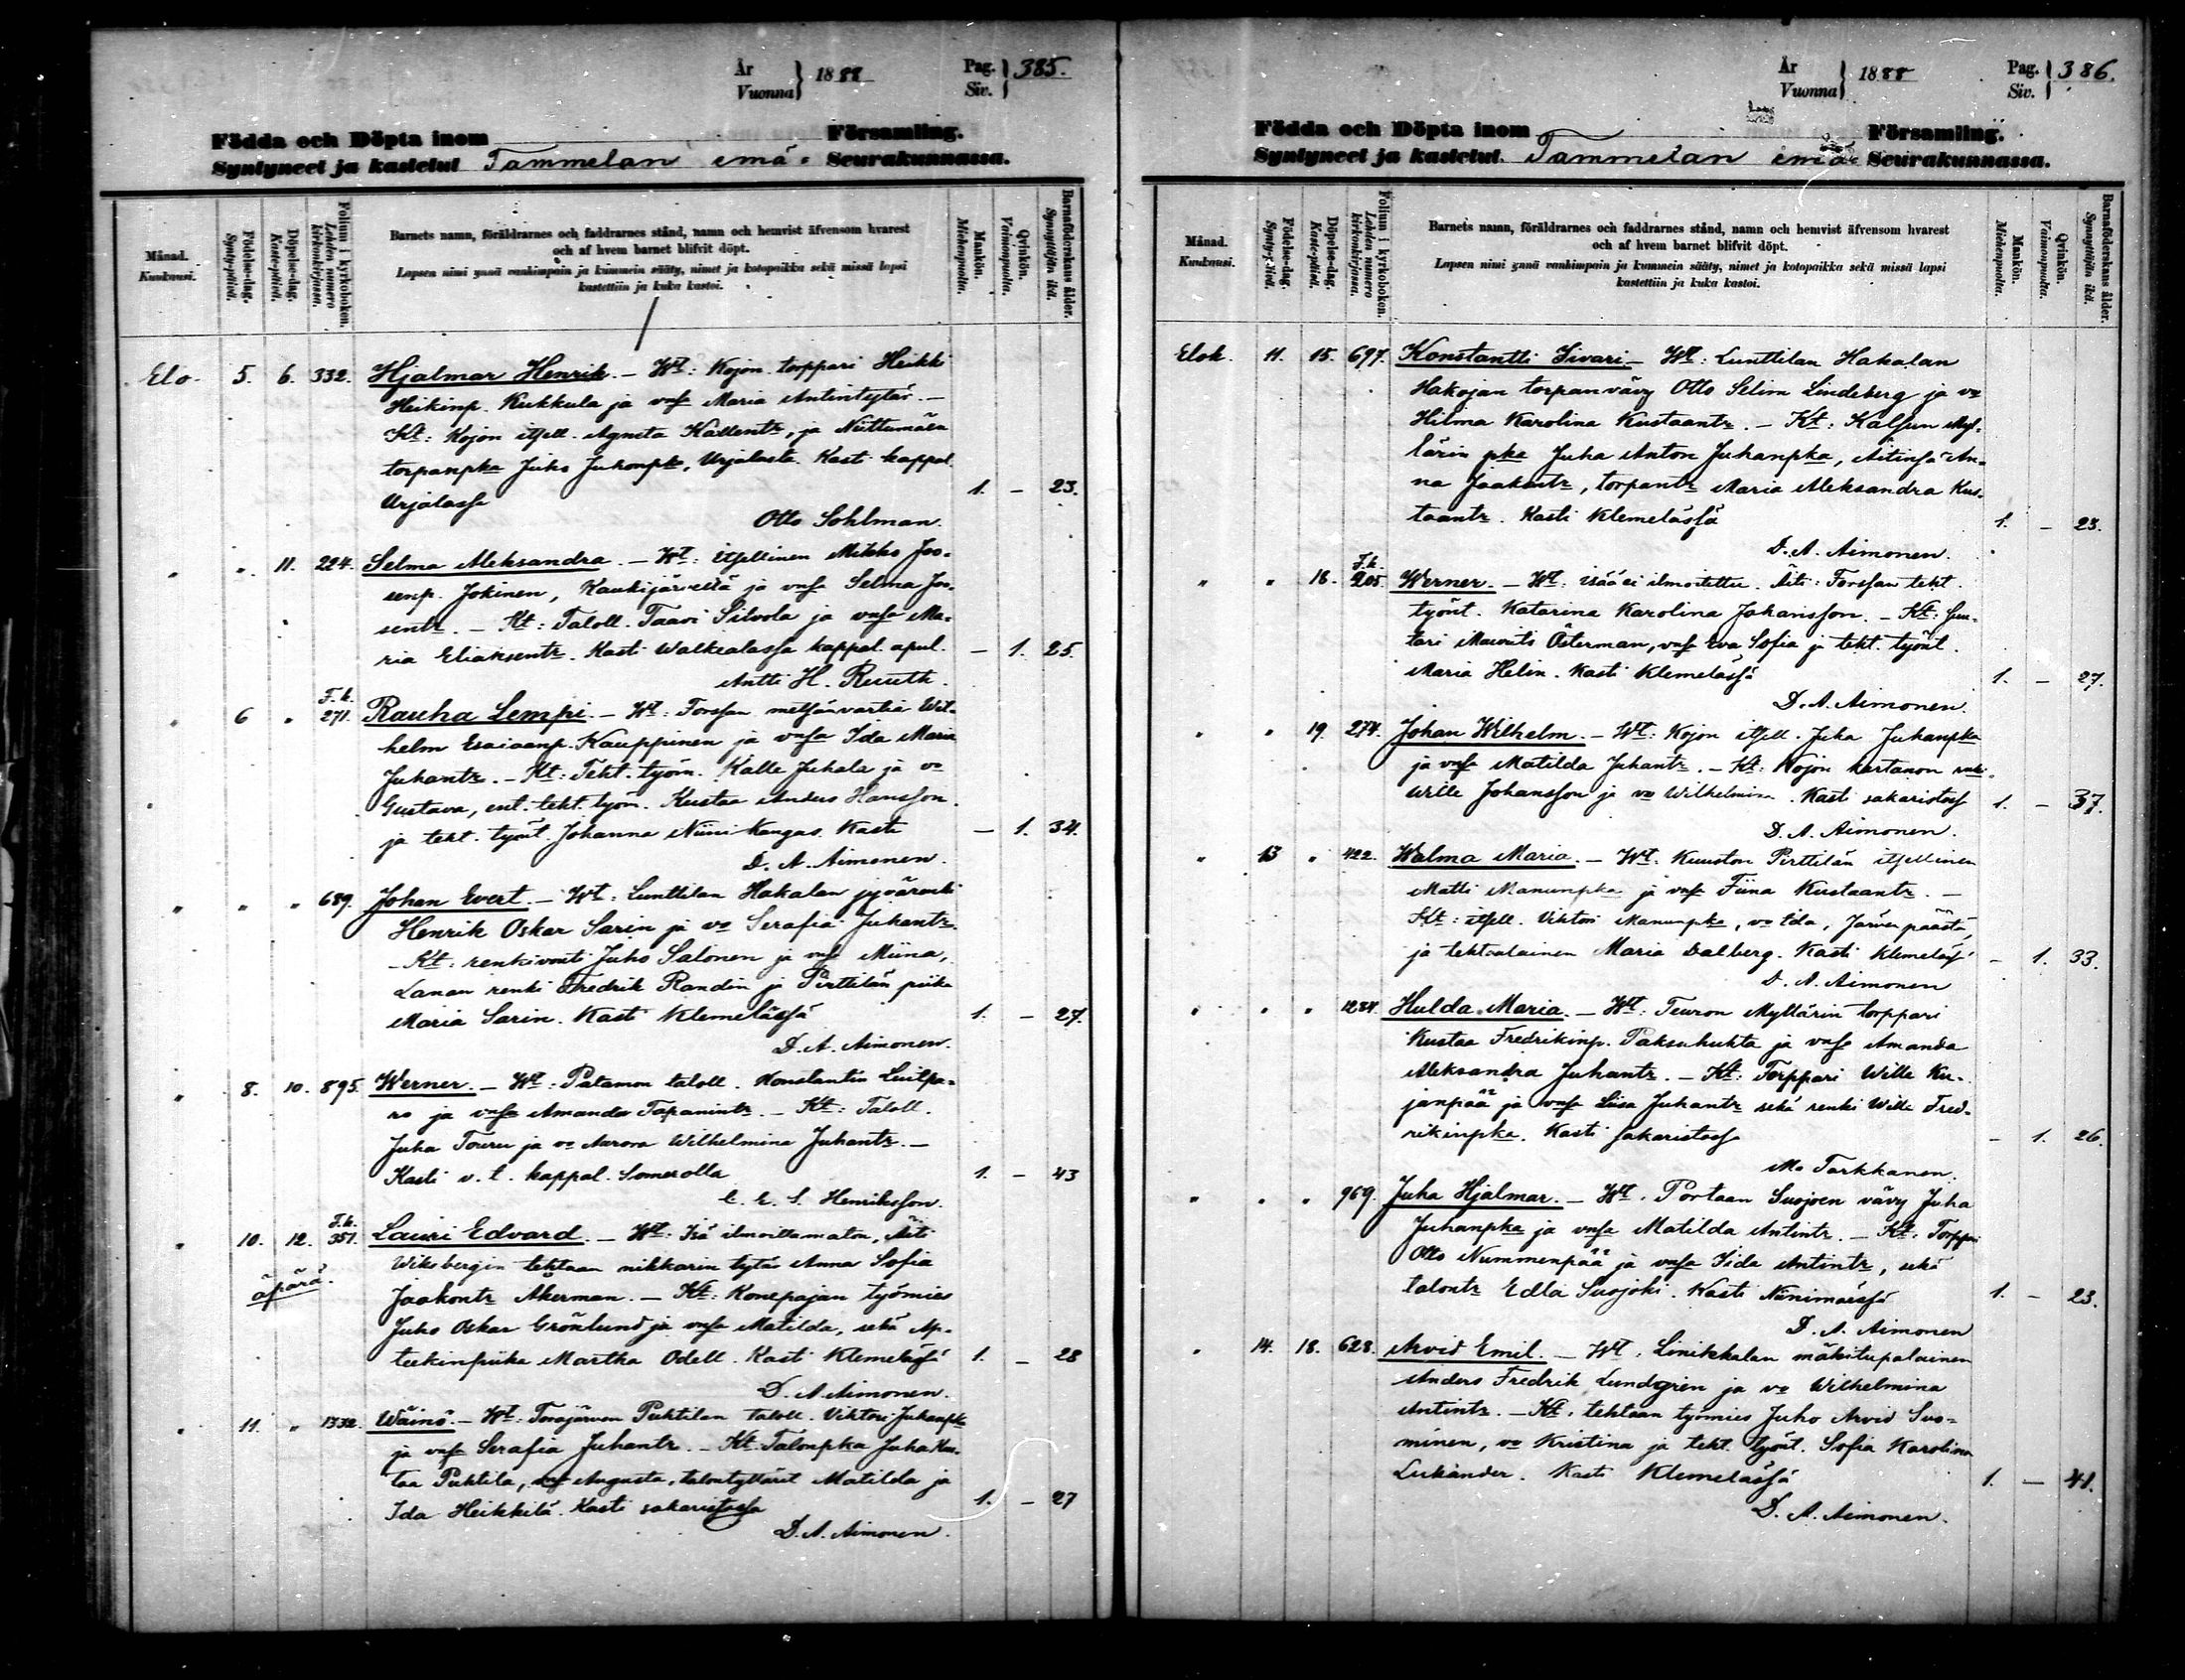 År
Vuonna } 1888
Pag.
Siv. } 385.
Födda och Döpta inom Församling.
Syntyneet ja kastetut Tammelan emä- Seurakunnassa.
Månad.
Kuukausi.
Födelse-dag.
Synty-päivä.
Döpelse-dag.
Kaste-päivä.
Folium i kyrkoboken.
Lehden numero kirkonkirjassa.
Barnets namn, föräldrarnes och faddrarnes stånd, namn och hemvist äfvensom hvarest
och af hvem barnet blifvit döpt.
Lapsen nimi ynnä vanhimpain ja kummein sääty, nimet ja kotopaikka sekä missä lapsi
kastettiin ja kuka kastoi.
Mankön.
Miehenpuolta.
Qvinkön.
Vaimonpuolta.
Barnaföderskans ålder.
Synnyttäjän ikä.
Elo. 5. 6. 332. Hjalmar Henrik. – Wt: Kojon torppari Heikki
Heikinp. Kukkula ja vnsa Maria Antintytär. –
Kt: Kojon itsell. Agneta Kallentr, ja Niittumäen
torpanpka Juho Juhonpka, Urjalasta. Kasti kappal.
Urjalassa 1. – 23.
Otto Sohlman.
" " 11. 224. Selma Aleksandra. – Wt: itsellinen Mikko Joo-
senp. Jokinen, Kaukijärveltä ja vnsa Selma Joo-
sentr. – Kt: Taloll. Taavi Silvola ja vnsa Ma-
ria Eliaksentr. Kasti Walkealassa kappal. apul. – 1. 25.
Antti H. Ruuth.
" 6 " F.k. 271. Rauha Lempi. – Wt: Forssan metsänvartia Wil-
helm Esaiaanp. Kauppinen ja vnsa Ida Maria
Juhantr. – Kt: Teht. työm. Kalle Juhala ja vo
Gustava, ent. teht. työm. Kustaa Anders Hansson.
ja teht. työnt. Johanna Niinikangas. Kasti – 1. 34.
D. A. Aimonen.
" " " 689. Johan Evert. – Wt: Lunttilan Hakalan jyvärenki
Henrik Oskar Sarin ja vo Serafia Juhantr.
– Kt: renkivouti Juho Salonen ja vnsa Miina,
Lanan renki Fredrik Randin ja Pirttilän piika
Maria Sarin. Kasti Klemelässä 1. – 27.
D. A. Aimonen.
" 8. 10. 895. Werner. – Wt: Patamon taloll. Konstantin Luilpa-
ro ja vnsa Amanda Tapanintr. – Kt: Taloll.
Juha Touru ja vo Aurora Wilhelmina Juhantr. –
Kasti v. t. kappal. Somerolla 1. – 43
E. S. Henriksson.
" 10. 12. F.k. 351. Lauri Edvard. – Wt: Isä ilmoittamaton, Äiti
äpärä. Wiksbergin tehtaan nikkarin tytär Anna Sofia
Jaakontr Åkerman. – Kt: Konepajan työmies
Juho Oskar Grönlund ja vnsa Matilda, sekä Ap-
teekinpiika Martha Odell. Kasti Klemelässä 1. – 28
D. A. Aimonen.
" 11. " 1332. Wäinö. – Wt: Torajärven Puhtilan taloll. Viktori Juhanpka
ja vnsa Serafia Juhantr. – Kt: Talonpka Juha Kus-
taa Puhtila, vnsa Augusta, talontyttäret Matilda ja
Ida Heikkilä. Kasti sakaristossa 1. – 27
D. A. Aimonen.
År
Vuonna } 1888
Pag.
Siv. } 386.
Födda och Döpta inom Församling.
Syntyneet ja kastetut Tammelan emä- Seurakunnassa.
Månad.
Kuukausi.
Födelse-dag.
Synty-päivä.
Döpelse-dag.
Kaste-päivä.
Folium i kyrkoboken.
Lehden numero kirkonkirjassa.
Barnets namn, föräldrarnes och faddrarnes stånd, namn och hemvist äfvensom hvarest
och af hvem barnet blifvit döpt.
Lapsen nimi ynnä vanhimpain ja kummein sääty, nimet ja kotopaikka sekä missä lapsi
kastettiin ja kuka kastoi.
Mankön.
Miehenpuolta.
Qvinkön.
Vaimonpuolta.
Barnaföderskans ålder.
Synnyttäjän ikä.
Elok. 11. 15. 697. Konstantti Iivari – Wt: Lunttilan Hakalan
Hakojan torpanvävy Otto Selim Lindeberg ja vo
Hilma Karolina Kustaantr. – Kt: Kalsun Myl-
lärin pka Juha Anton Juhanpka, Äitinsä An-
na Jaakontr, torpantr Maria Aleksandra Kus-
taantr. Kasti Klemelässä 1. – 23.
D. A. Aimonen.
" " 18. F.k. 205. Werner. – Wt: isä ei ilmoitettu. Äiti: Forssan teht.
työnt. Katarina Karolina Johansson. – Kt: Suu-
tari Maurits Österman, vnsa Eva Sofia ja teht. työnt.
Maria Helin. Kasti Klemelässä 1. – 27.
D. A. Aimonen.
" " 19. 274. Johan Wilhelm. – Wt: Kojon itsell. Juha Juhanpka
ja vnsa Matilda Juhantr. – Kt: Kojon kartanon renki
Wille Johansson ja vo Wilhelmina. Kasti sakaristossa 1. – 37.
D. A. Aimonen.
" 13 " 422. Walma Maria. – Wt: Kuuston Pirttilän itsellinen
Matti Manunpka ja vnsa Fiina Kustaantr. –
Kt: itsell. Viktori Manunpka, vo Ida, Järvenpäästä,
ja tehtaalainen Maria Dalberg. Kasti Klemelässä – 1. 33.
D. A. Aimonen
" " " 1234. Hulda Maria. – Wt: Teuron Myllärin torppari
Kustaa Fredrikinp. Paksuhuhta ja vnsa Amanda
Aleksandra Juhantr. – Kt: Torppari Wille Ku-
janpää ja vnsa Liisa Juhantr sekä renki Wille Fred-
rikinpka. Kasti sakaristossa – 1. 26.
Mo Tarkkanen.
" " " 969. Juha Hjalmar. – Wt: Portaan Suojoen vävy Juha
Juhanpka ja vnsa Matilda Antintr. – Kt: Torppari
Otto Nummenpää ja vnsa Iida Antintr, sekä
talontr Edla Suojoki. Kasti Niinimäessä 1. – 23.
D. A. Aimonen
" 14. 18. 628. Arvid Emil. – Wt: Linikkalan mäkitupalainen
Anders Fredrik Lundgren ja vo Wilhelmina
Antintr. – Kt: tehtaan työmies Juho Arvid Suo-
minen, vo Kristina ja teht. työnt. Sofia Karolina
Lukander. Kasti Klemelässä 1. – 41.
D. A. Aimonen.